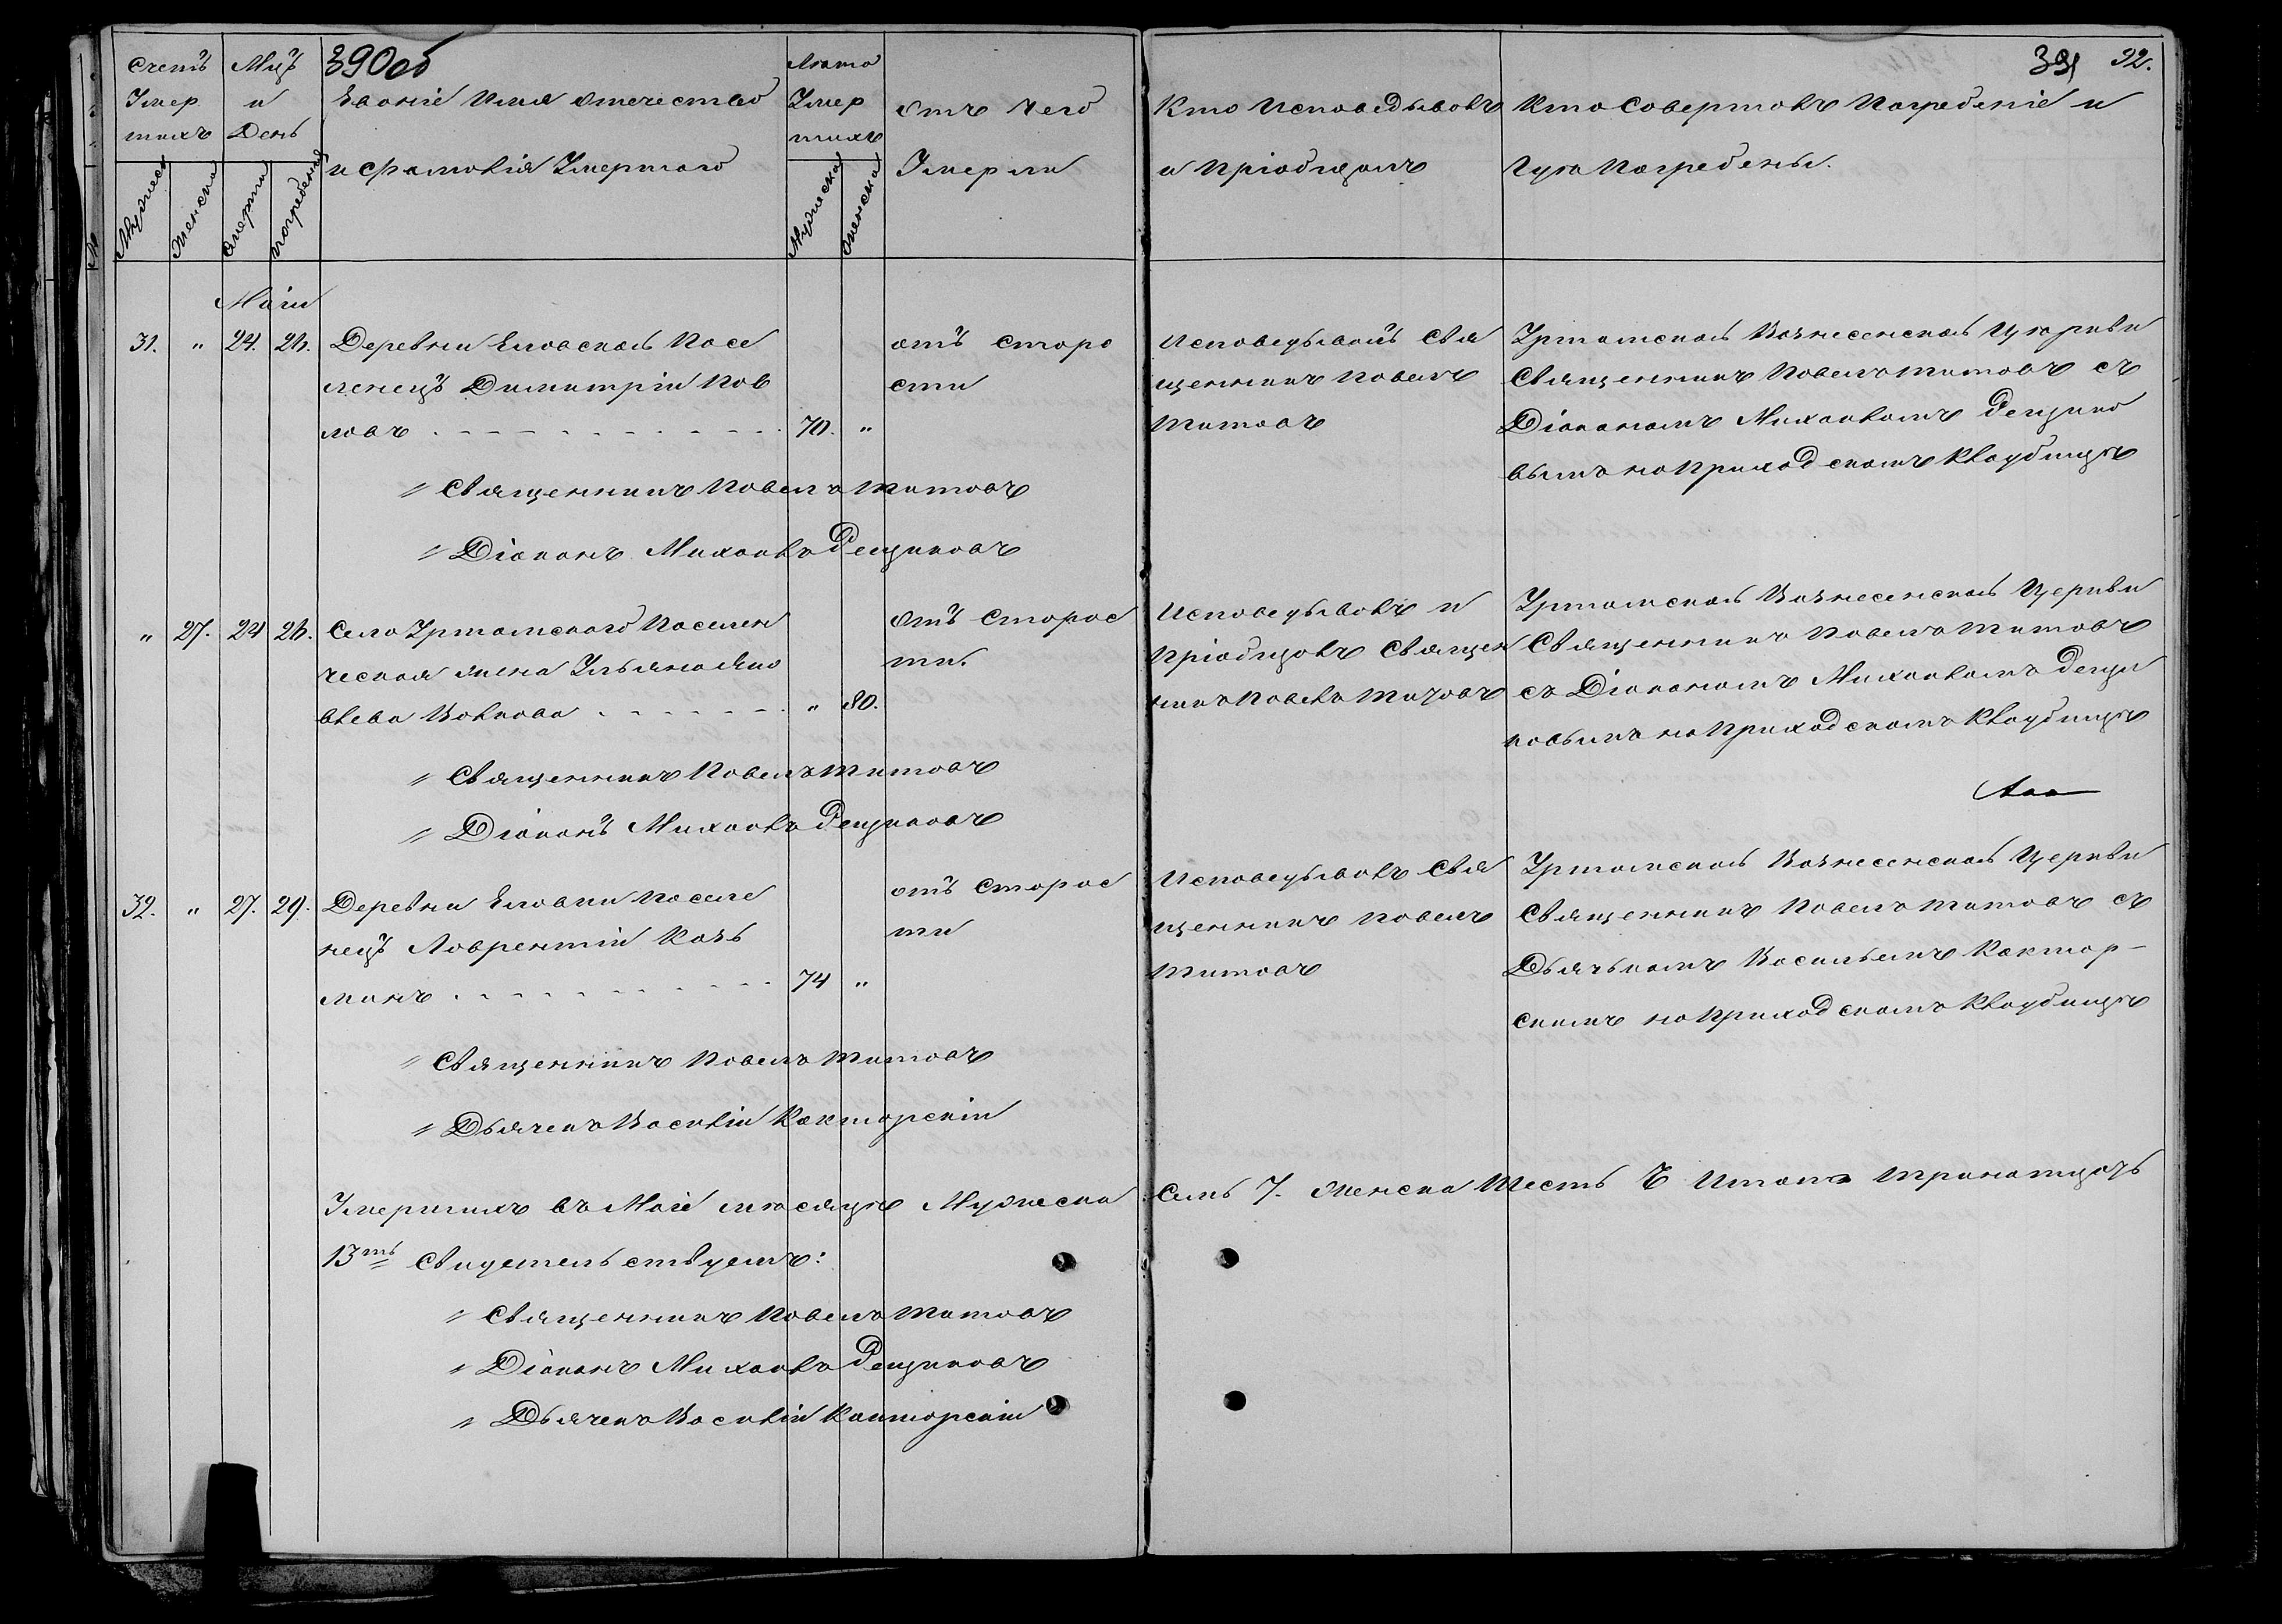 390об
Счетъ Умер шихъ
Мцъ и День
Званіе Имя Отечество
и Фамилія Умершаго
Лѣта Умер шихъ
Отъ Чего
Умерли
Кто Исповедывалъ
и Пріобщалъ
Кто Совершалъ Погребеніе и
Где Погребены.
391 32.
Мужеска
Женска
смерти
погребения
Мужеска
женска
Маія
31. " 24. 26. Деревни Еловской Посе
ленецъ Димитрій Пав
ловъ 70. "
отъ старо
сти
Исповедывалъ Свя
щенникъ Павелъ
Титовъ
Уртамской Вознесенской Церкви
Священникъ Павелъ Титовъ съ
Діакономъ Михаиломъ Рещико
вымъ на Приходскомъ Кладбищѣ
" Священникъ Павелъ Титовъ
" Діаконъ Михаилъ Рещиковъ
" 27. 24 26. Села Уртамскаго Поселен
ческая жена Ульяна Яко
влева Волкова " 80.
Отъ Старос
ти.
Исповедывалъ и
Пріобщалъ Священ
никъ Павелъ Титовъ
Уртамской Вознесенской Церкви
Священникъ Павелъ Титовъ
съ Діакономъ Михаиломъ Рещи
ковымъ на Приходскомъ Кладбищѣ
" Священникъ Павелъ Титовъ
" Діаконъ Михаилъ Рещиковъ
32. " 27. 29. Деревни Еловки Поселе
нецъ Лаврентій Козь
минъ 74 "
отъ Старос
ти
Исповедывалъ Свя
щенникъ Павелъ
Титовъ
Уртамской Вознесенской Церкви
Священникъ Павелъ Титовъ съ
Дьячькомъ Васильемъ Кактор-
скимъ на Приходскомъ Кладбищѣ
" Священникъ Павелъ Титовъ
" Дьячекъ Василій Какторскій
Умершихъ въ Маіе месяцѣ Мужеска Семь 7. Женска Шесть 6 Итого Тринатцать
13ть Свидетельствуемъ:
" Священникъ Павелъ Титовъ
" Діаконъ Михаилъ Рещиковъ
" Дьячекъ Василій Какторскій